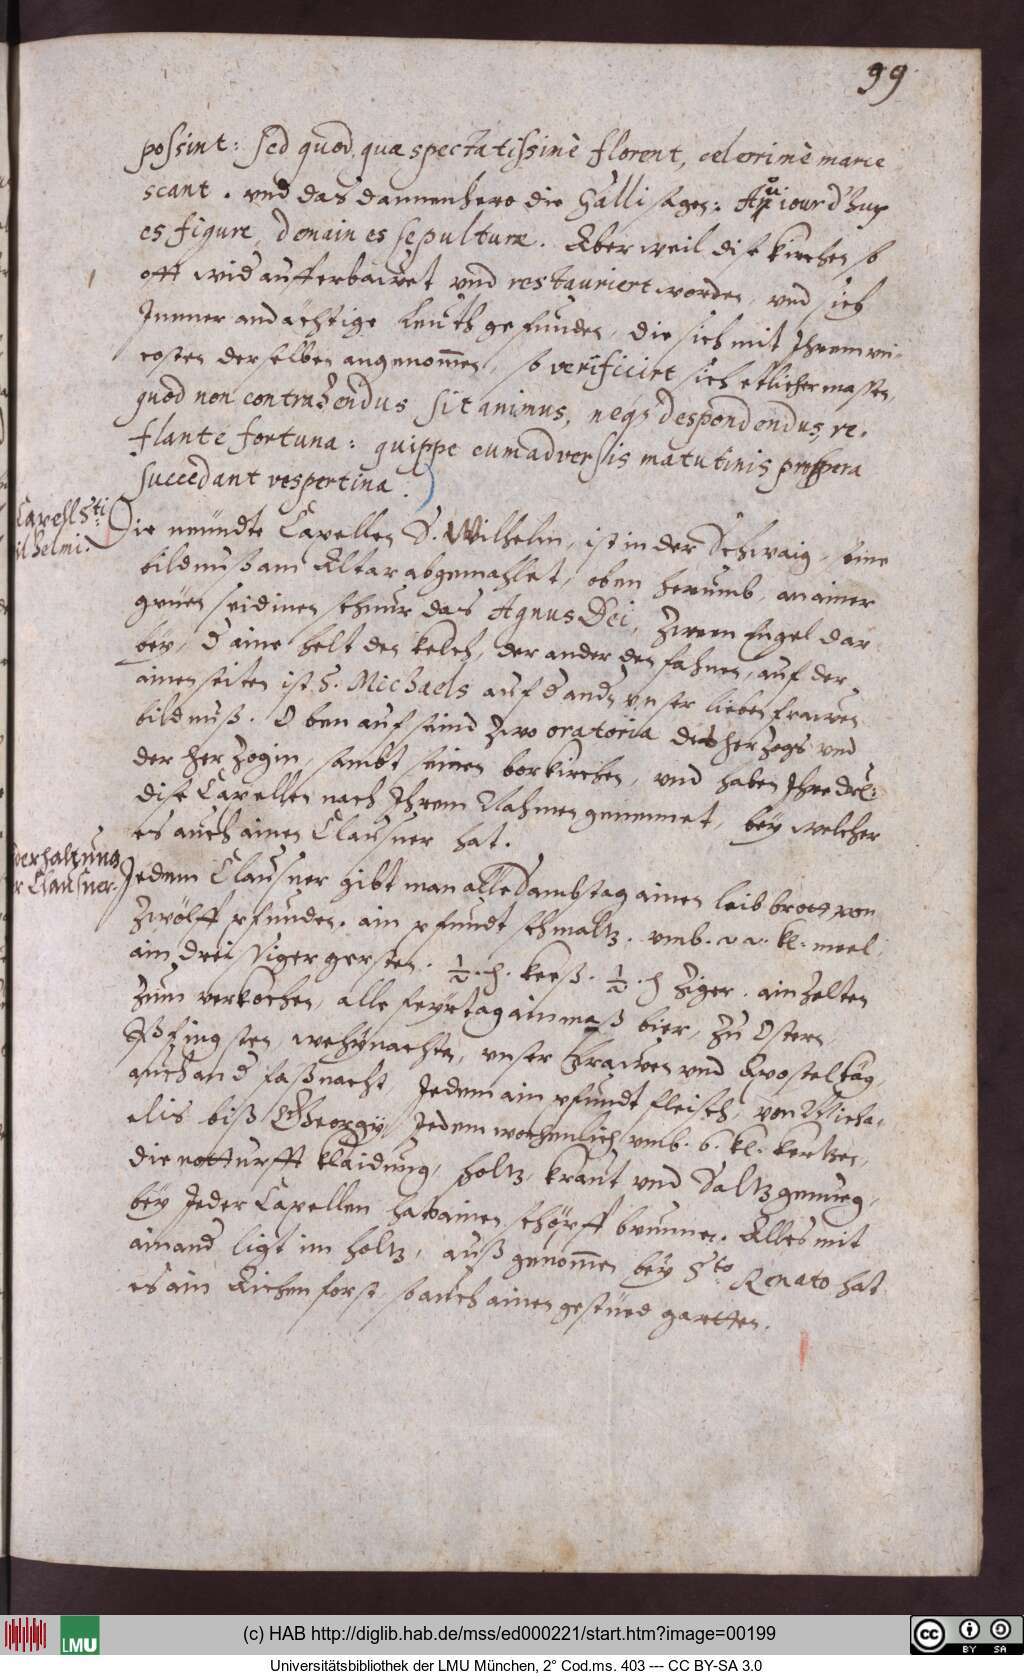 99
possint: sed quod, quae spectatissimè florent, celerrimè marce
scant. vnd das dannenhero die Galli sagen: Au iourd'huy
es figure, demain es sepulturae. Aber weil dise kirchen so
offt wid aufferbawet vnd restauriert worden, vnd sich
Immer andächtige Leuth gefunden, die sich mit Ihrem vn-
costen derselben angenom̄en, so verificirt sich etlicher massen,
quod non contrahendus sit animus, neq despondendus, re-
flante fortuna: quippe cum adversis matutinis prospera
succedant vespertina.
Capell Sti
ilhelmi.
Die neündte Capellen S. Wilhelm, ist in der Schwaig, seine
bildnuß am Altar abgemahlet, oben herumb, an ainer
grüen seidinen schnur das Agnus Dei, Zween Engel dar-
bey, d aine helt den kelch, der ander den fahnen, auf der
ainen seiten ist S. Michaels auf d andn vnser lieben frawen
bildnuß. Oben auf seind zwo oratoria des herzogs vnd
der herzogin, sambt einen borkirchen, vnd haben Ihre drl:
dise Capellen nach Ihrem Nahmen genennet, bey welcher
es auch ainen Clausner hat.
derhaltung
r Clausner.
Jedem Clausner gibt man alle Sambstag ainen leib brots von
zwölff pfunden. ain pfundt schmaltz. vmb. 22. kl. meel,
ain dreissiger gersten. ½. lb. keeß. ½. lb Ziger. ain zelten
zum verkochen, alle feyrtag ain maß bier, zu Ostern,
Pfingsten, weyhnachten, vnser Frawen vnd Apostel täg,
auch an d faßnacht, Jedem ain pfundt fleisch, von Micha-
elis biß Georgy Jedem wochenlich vmb. 6. kl. kertzen,
die notturfft klaidung, holtz, kraut vnd Saltz genueg,
bey Jeder Capellen hats ainen schöpff brunnen. Alles mit
ainand ligt im holtz, außgenom̄en bey Sto Renato hat
es ain Aichen forst, so auch ainen gestüed garten.
(c) HAB http://diglib.hab.de/mss/ed000221/start.htm?image=00199
LMU
cc BY SA
Universitätsbibliothek der LMU München, 2° Cod.ms. 403 --- CC BY-SA 3.0